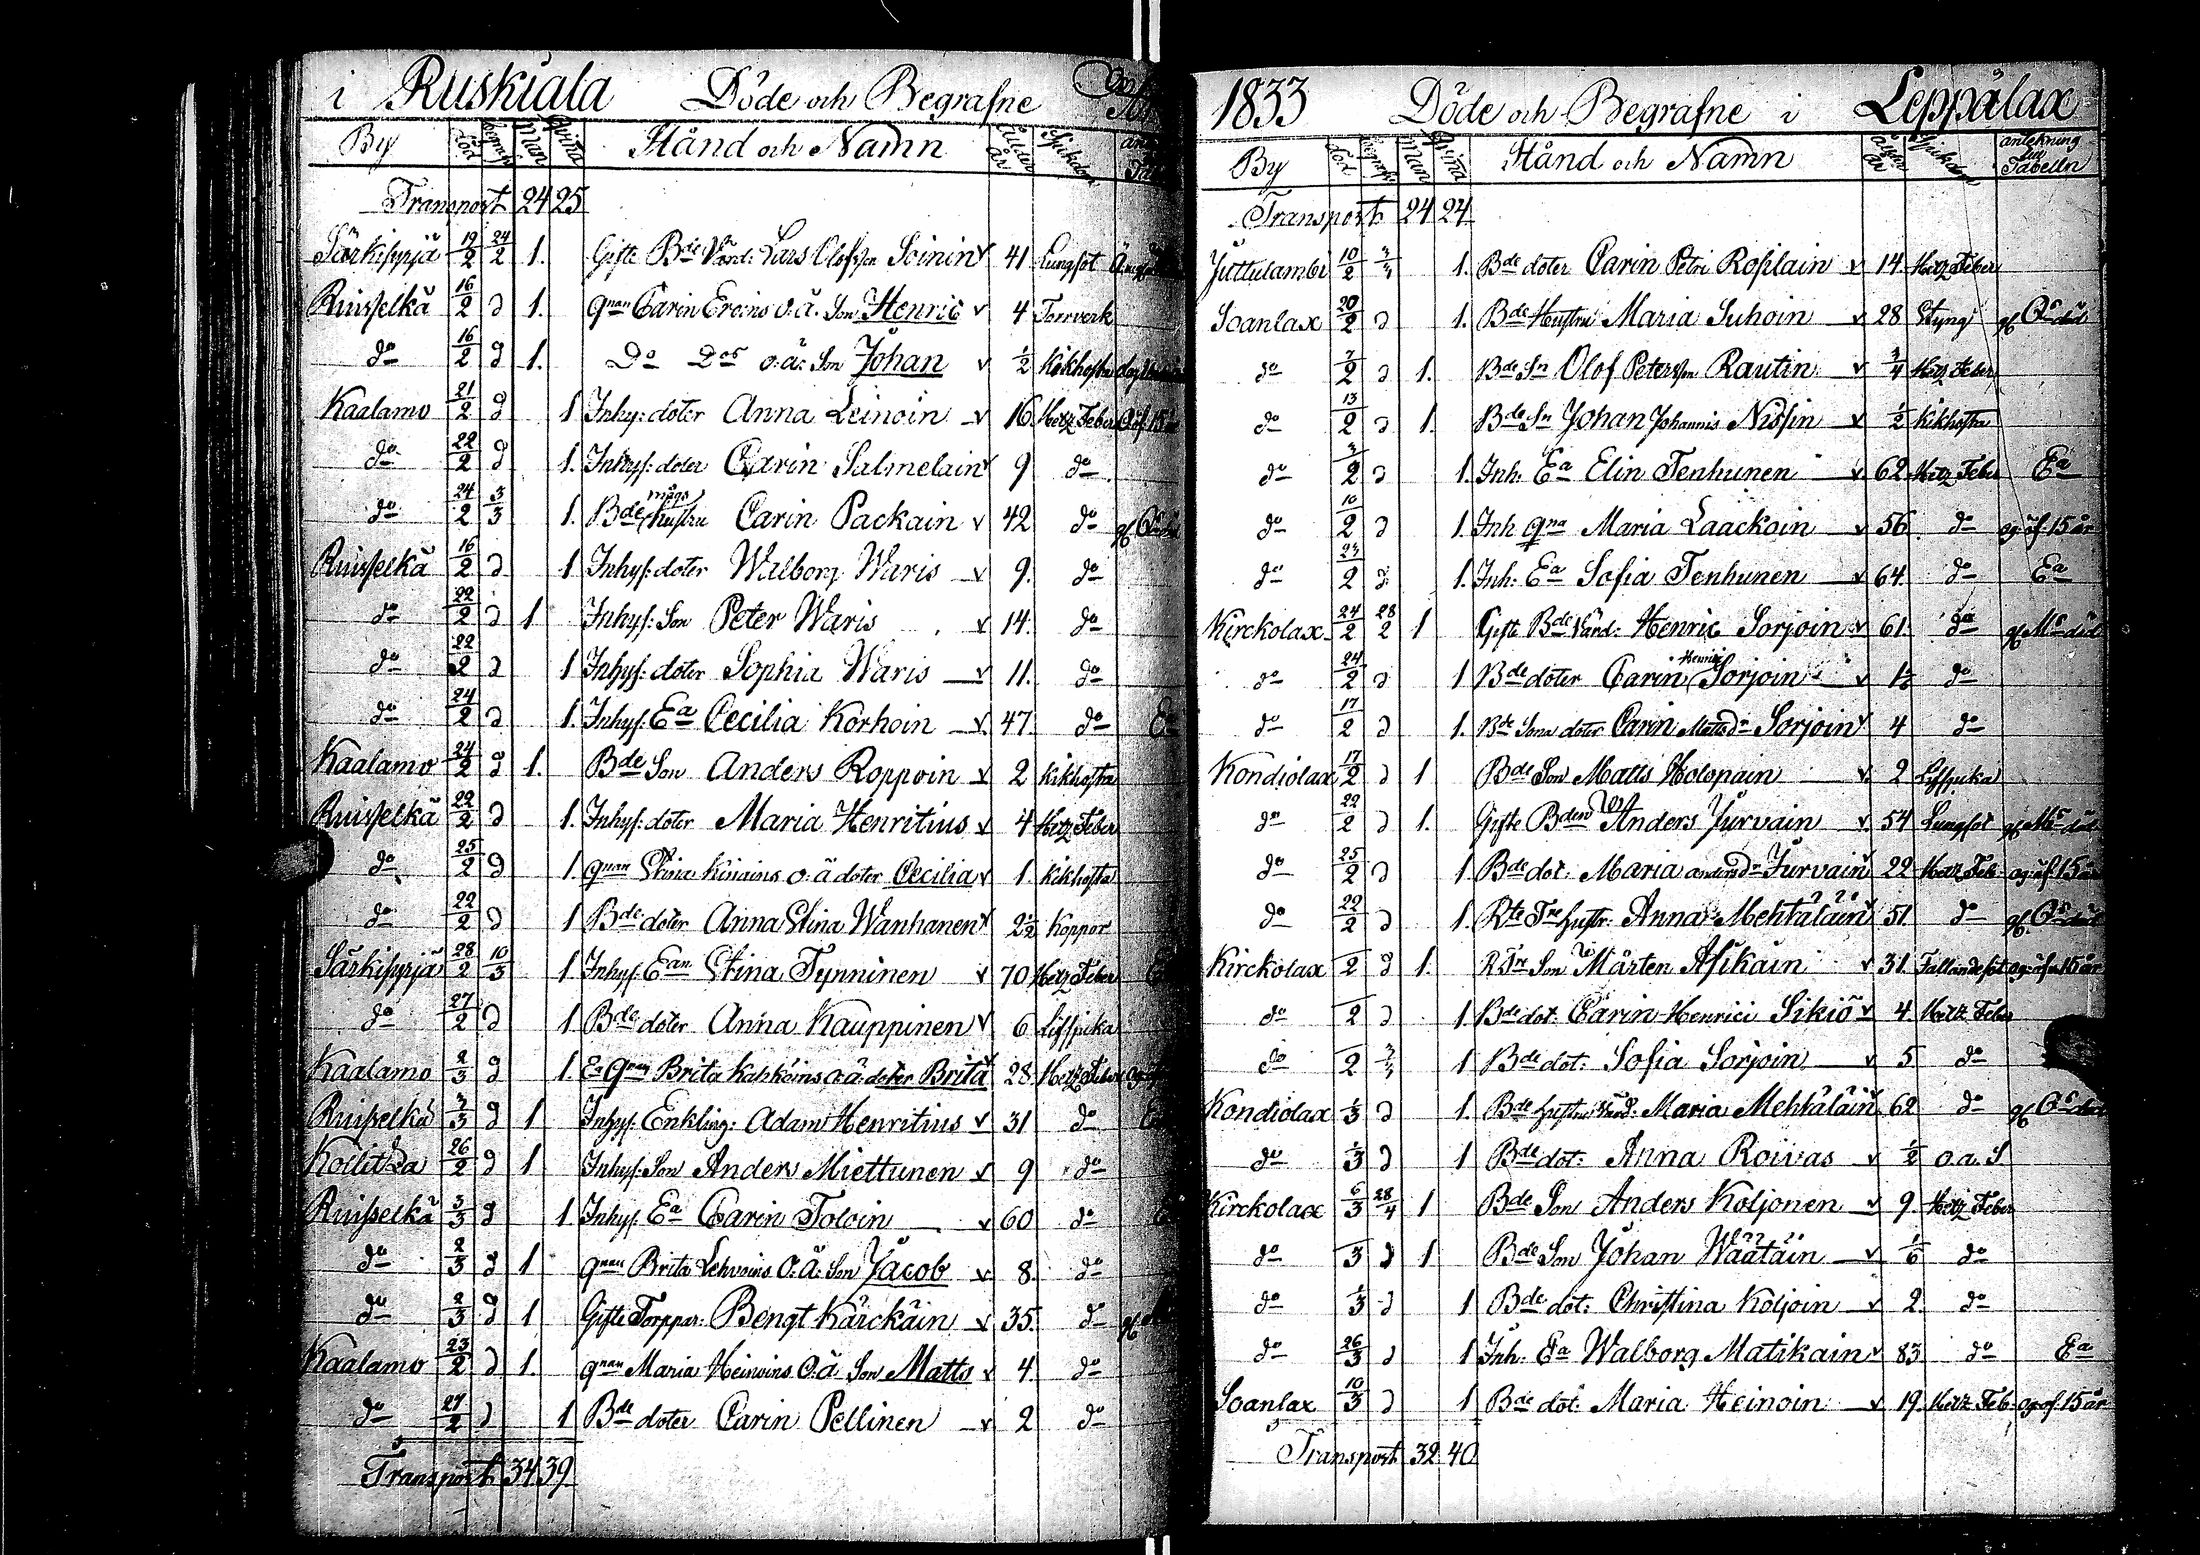 i Ruskiala Döde och Begrafne
By död begrafn Man Qvina Stånd och Namn Ålder år Sjukdom
Transport 24 25
Särkisyrjä 19/2 24/2 1. Gifte Bde Värd: Lars Olofsson Soinin v 41 Lungsot
Ruisselkä 16/2 d 1. qnan Carin Ereins o.ä. Son Henric v 4 Torrverk
do 16/2 d 1. Do Dos o:ä: Son Johan v 1/2 Kikhosta
Kaalamo 21/2 d 1 Inhys: doter Anna Leinoin v 16 Hetz Feber öf. 15 år
do 22/2 d 1. Inhys: doter Carin Salmelain v 9 do
do 24/2 3/3 1. Bde mågs hustru Carin Packain v 42 do
Ruisselkä 16/2 d 1 Inhys: doter Walborg Waris v 9. do
do 22/2 d 1 Inhys: Son Peter Waris v 14. do
do 22/2 d 1 Inhys: doter Sophia Waris v 11. do
do 24/2 d 1. Inhys: Ea Cecilia Korhoin v. 47. do Ea
Kaalamo 24/2 d 1. Bde Son Anders Roppoin v 2 Kikhosta
Ruisselkä 22/2 d 1. Inhys: doter Maria Henritius v 4 Hetz Feber
do 25/2 d 1 qnan Stina Kinains o.ä doter Cecilia v 1. Kikhosta
do 22/2 d 1 Bde doter Anna Stina Wanhanen v 2 1/2 Koppor
Särkisyrjä 28/2 10/3 1 Inhys. Ean Stina Tynninen v 70 Hetz Feber
do 27/2 d 1. Bde doter Anna Kauppinen v 6 Lifssjuka
Kaalamo 2/3 d 1. Ea qnan Brita Kahkoins o.ä. doter Brita 28. Hetz Feber
Ruisselkä 3/3 d 1 Inhys: Enkling: Adam Henritius v 31 do
Koilitza 26/2 d 1 Inhys: Son Anders Miettunen v 9 do
Ruisselkä 3/3 d 1. Inhys Ea Carin Toloin v 60 do
do 2/3 d 1 qnan Brita Lehvoins O.ä: Son Jacob v 8. do
do 2/3 d 1 Gifte Torppar: Bengt Kärckäin v 35. do
Kaalamo 23/2 d 1. qnan Maria Heinoins O.ä. Son Matts v 4 do
do 27/2 d 1 Bde doter Carin Pellinen v 2 do
Transport 34 39
1833 Döde och Begrafne i Leppälax
By död begrafn Man Qvina Stånd och Namn ålder år Sjukdom antekning till Tabelln
Transport 24 24
Juttulambi 10/2 3/3 1. Bde doter Carin Petri Rosslain v 14 Hetz Feber
Soanlax 20/2 d 1. Bde Hustru Maria Suhoin v 28 Styng gf Qs död
do 7/2 d 1. Bde Sn Olof Petersson Rautin v 3/4 Hetz Feber
do 13/2 d 1. Bde Sn Johan Johannis Nissin v 1/2 Kikhosta
do 3/2 d 1. Inh. Ea Elin Tenhunen v 62 Hetz Feber Ea
do 10/2 d 1. Inh qna Maria Laackoin v 56 do og: öf. 15 år
do 23/2 d 1. Inh: Ea Sofia Tenhunen v 64. do Ea
Kirckolax 24/2 28/2 1 Gifte Bde Värd: Henric Sorjoin v 61 do gf Ms död
do 24/2 d 1 Bde doter Carin Henrici Sorjoin v do
do 17/2 d 1. Bde Sona doter Carin Mattsdr Sorjoin v 4 do
Kondiolax 17/2 d 1 Bde Son Matts Holopain v 2 Lifssjuka
do 22/2 d 1. Gifte Bden Anders Jurvain v. 54 Lungsot gf Ms död
do 25/2 d 1. Bde dot. Maria andersdr Jurvain 22 Hetz Feb og: öf. 15 år
do 22/2 d 1. Rte Tre hustr: Anna Mehtäläin 51. do gf Qs död
Kirckolax /2 d 1. R Tre Son Mårten Asikain v 31. Fallandesot og: öf. 15 år
do /2 d 1 Bde dot: Carin Henrici Sikiö v 4 Hetz Feber
do /2 3/3 1 Bde dot: Sofia Sorjoin v 5 do
Kondiolax 1/3 d 1. Bde hustru Värd: Maria Mehtäläin 62 do gf Qs död
do 1/3 d 1 Bde dot: Anna Roivas v 1/2 o.a. S
Kirckolax 6/3 28/4 1 Bde Son Anders Koljonen v 9. Hetz Feber
do /3 d 1 Bde Son Johan Wäätäin v 1/6 do
do 1/3 d 1 Bde dot: Christina Koljoin v 2. do
do 26/3 d 1 Inh: Ea Walborg Matikain v 83 do Ea
Soanlax 10/3 d 1 Bde dot: Maria Heinoin v 19. Hetz Feb. og: öf. 15 år
Transport 32 40